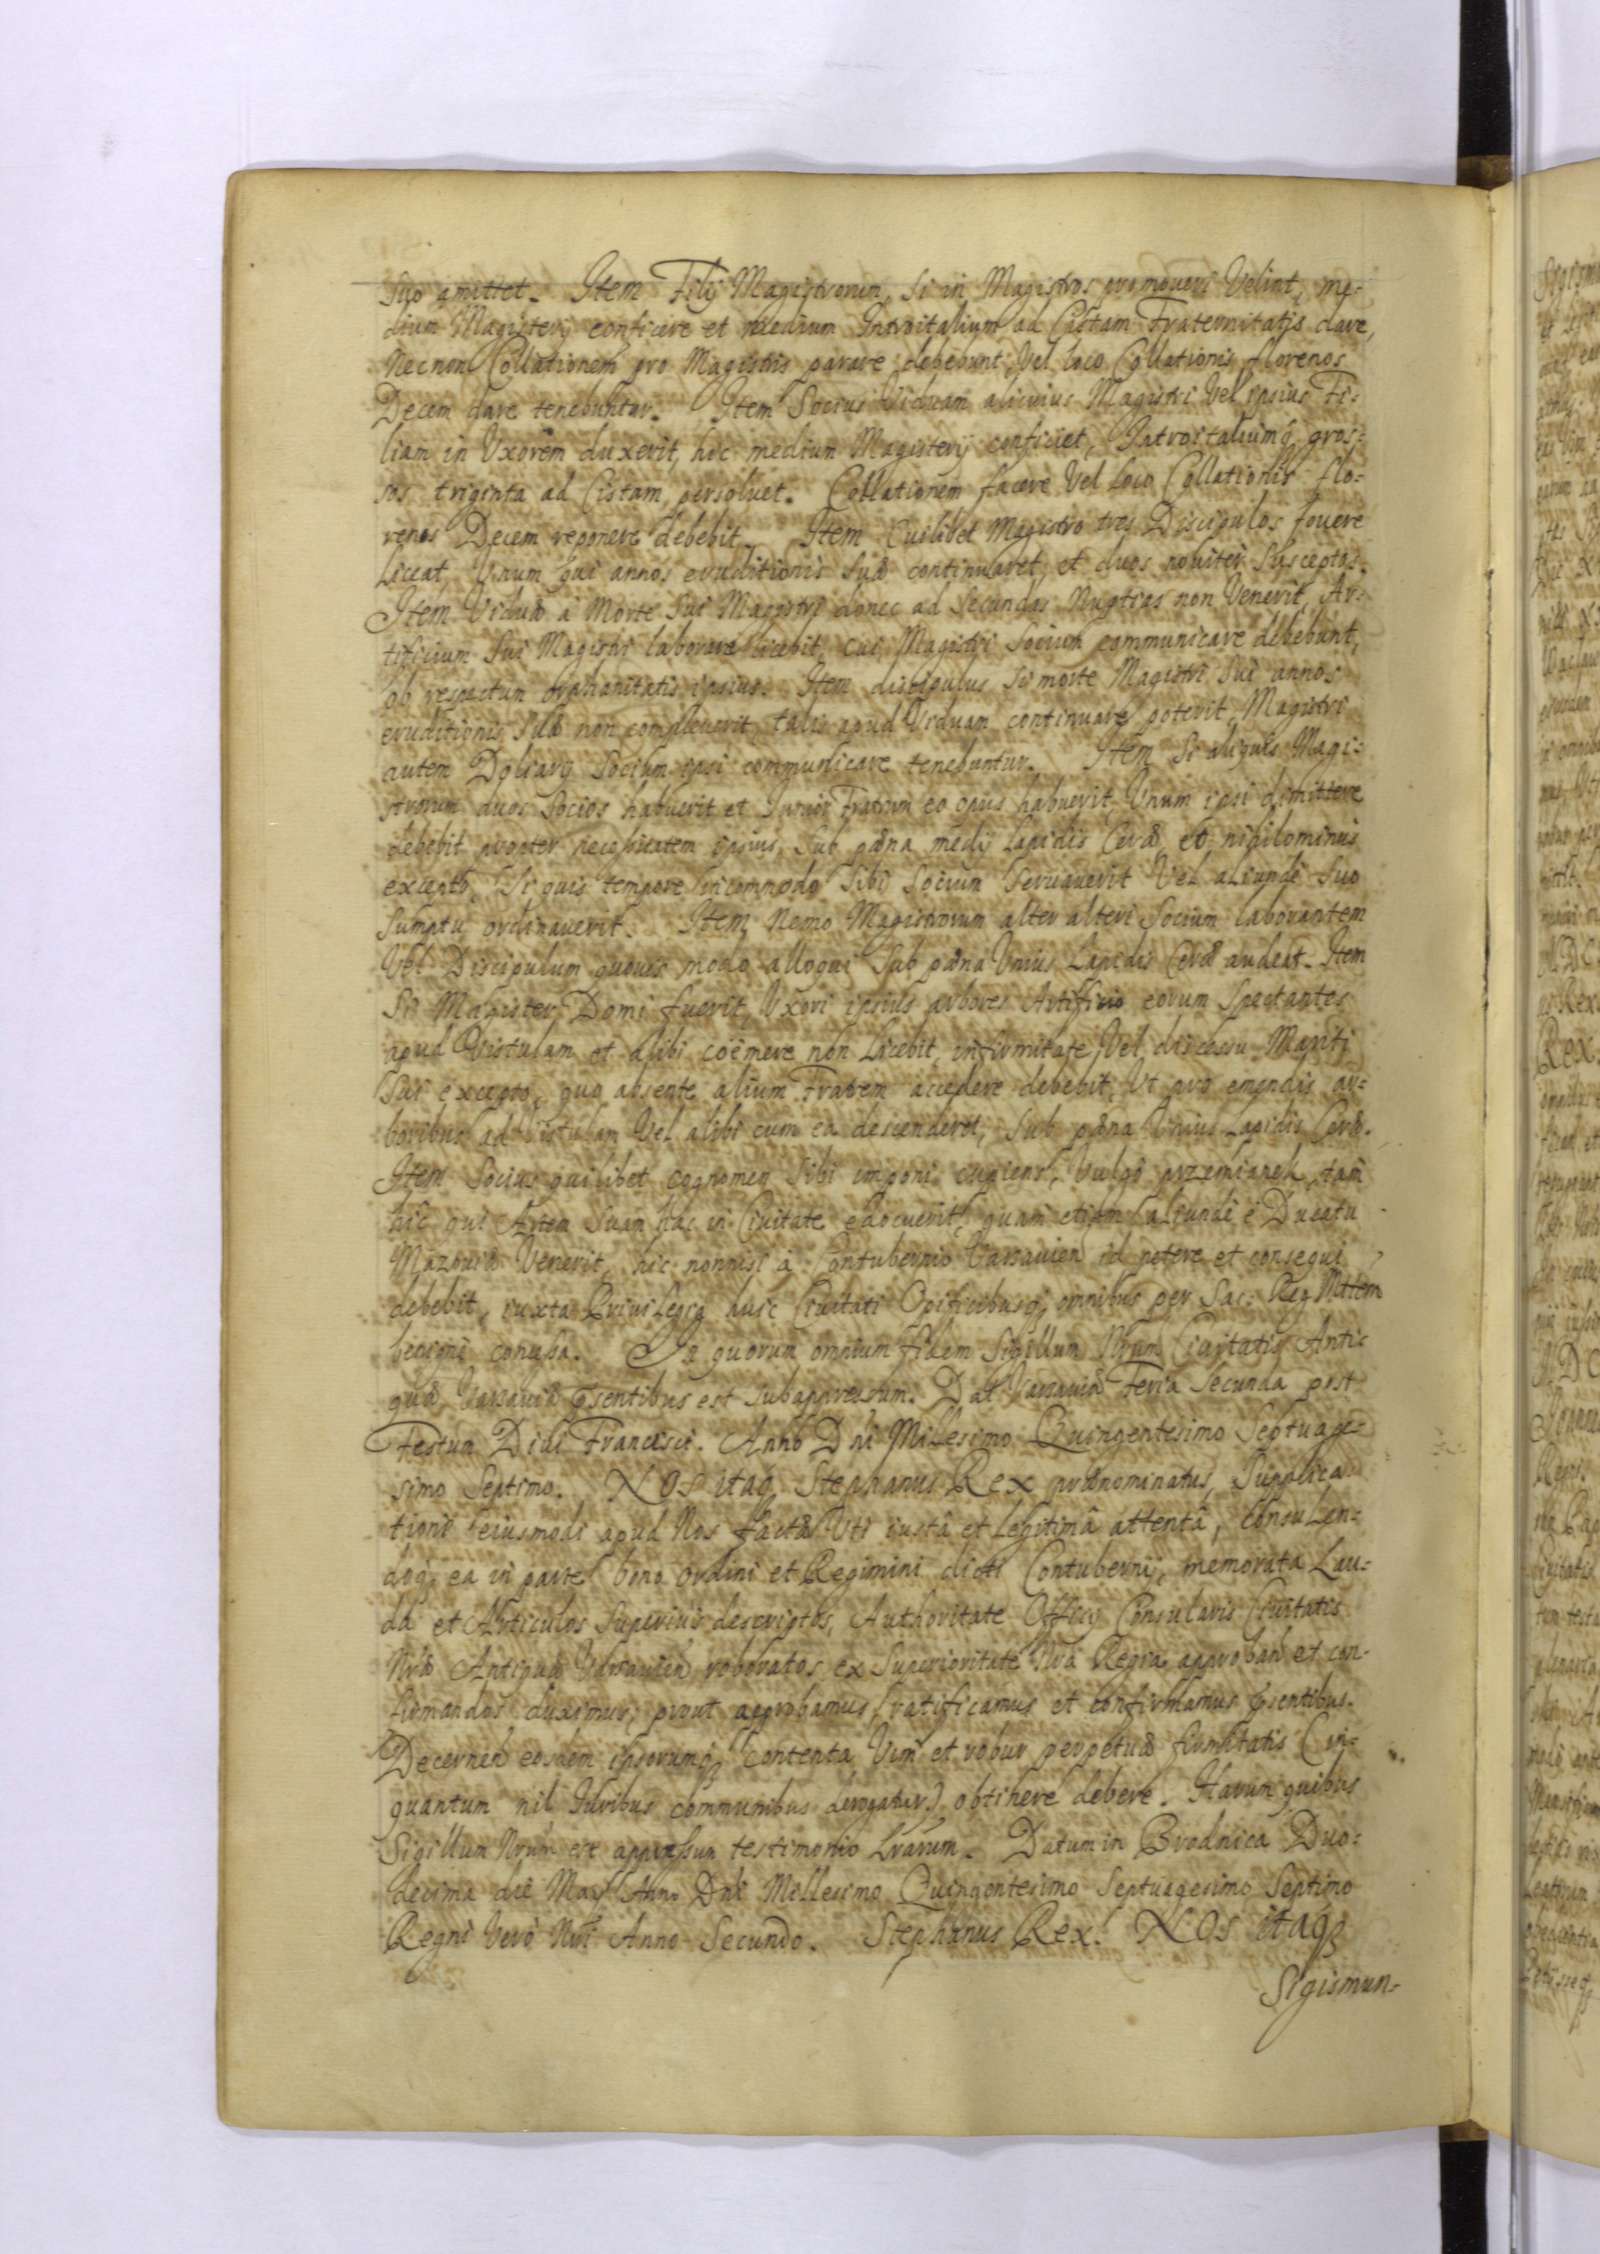 suo amittet. Item Filij Magistrorum, si in Magistros promoveri Velint, me-
dium Magisterij conficere et medium Introitalium ad Cistam Fraternitatis dare,
Necnon Collationem pro Magistris parare debebunt, Vel loco Collationis florenos
Decem dare tenebuntur. Item Socius Viduam alicuius Magistri Vel ipsius Fi-
liam in Vxorem duxerit, hic medium Magisterij conficiet, Introitaliumq gros-
sos triginta ad Cistam persoluet. Collationem facere Vel loco Collationis flo-
renos Decem reponere debebit. Item Cuilibet Magistro tres Discipulos fouere
Liceat, Vnum qui annos eruditionis suæ continuaret, et duos nouiter susceptos.
Item Vidua à Morte sui Magistri donec ad secundas Nuptias non Venerit, Ar-
tificium sui Magistri laborare licebit, cui Magistri socium communicare debebunt,
ob respectum orphanitatis ipsius. Item discipulus si morte Magistri sui annos
eruditionis suæ non compleuerit, talis apud Viduam continuare poterit, Magistri
autem Doliarij Socium ipsi communicare tenebuntur. Item Si aliquis Magi-
strorum duos Socios habuerit et Iunior Fratrum eo opus habuerit, Vnum ipsi dimittere
debebit propter necessitatem ipsius, Sub pœna medij Lapidis Ceræ, eo nihilominus
excepto, Si quis tempore incommodo sibi Socium seruauerit Vel aliunde suo
sumptu ordinauerit. Item Nemo Magistrorum alter alteri Socium laborantem
Vel Discipulum quouis modo alloqui sub pœna Vnius Lapidis Ceræ audeat. Item
Si Magister Domi fuerit, Vxori ipsius arbores Artificio eorum spectantes
apud Vistulam et alibi coëmere non licebit, infirmitate Vel discessu Mariti
sui excepto, quo absente alium Fratrem accedere debebit, Vt pro emendis ar-
boribus ad Vistulam Vel alibi cum ea descenderet, sub pœna Vnius Lapidis Ceræ.
Item Socius quilibet cognomen sibi imponi cupiens, Vulgò przemianek, tam
hic qui Artem suam hac in Ciuitate edocuerit, quam etiam aliunde è Ducatu
Mazouiæ Venerit, hic nonnisi à Contubernio Varsauien id petere et consequi
debebit, iuxta Priuilegia huic Ciuitati Opificibusq omnibus per Sac: Reg Mttem
benignè concessa. In quorum omnium fidem Sigillum Nrum Ciuitatis Anti-
quæ Varsauiæ psentibus est subappressum. Dat Varsauiæ Feria Secunda post
Festum Diui Francisci. Anno Dni Millesimo Quingentesimo Septuage-
simo Septimo. NOS itaq Stephanus Rex prænominatus, Supplica-
tioni eiusmodi apud Nos factæ Vti iustâ et legitimâ attentâ, Consulen-
doq ea in parte bono ordini et Regimini dicti Contubernij, memorata Lau-
da et Articulos superius descriptos, Authoritate Officij Consularis Ciuitatis
Nræ Antiquæ Varsauien roboratos ex Superioritate Nra Regia approban et con-
firmandos duximus, prout approbamus, ratificamus et confirmamus psentibus.
Decernen eosdem ipsorumq contenta, Vim et robur perpetuæ firmitatis (in-
quantum nil Iuribus communibus derogatur) obtinere debere. Harum quibus
Sigillum Nrum est appressum testimonio Lrarum. Datum in Brodnica Duo-
decima die Maij Anno Dni Millesimo Quingentesimo Septuagesimo Septimo
Regni Verò Nri Anno Secundo. Stephanus Rex. NOS itaq
Sigismun-